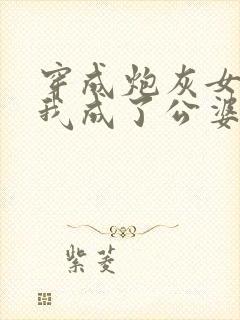 穿成炮灰女
我成了公婆
紫菱